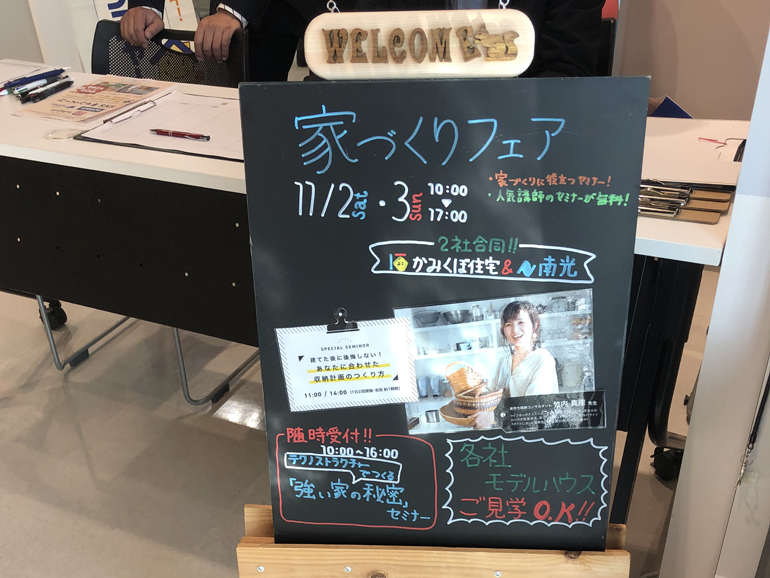 WELCOME
家づくりフェア
11/2 sat・3 sun 10:00
▼
17:00
・家づくりに役立つセミナー!
・人気講師のセミナーが無料!
2社合同!!
かみくぼ住宅 & 南光
SPECIAL SEMINOR
建てた後に後悔しない!
あなたに合わせた
収納計画のつくり方
11:00 / 14:00
竹内 真理 先生
随時受付!!
10:00~16:00
テクノストラクチャー
でつくる
「強い家の秘密」
セミナー
各社
モデルハウス
ご見学 O.K!!